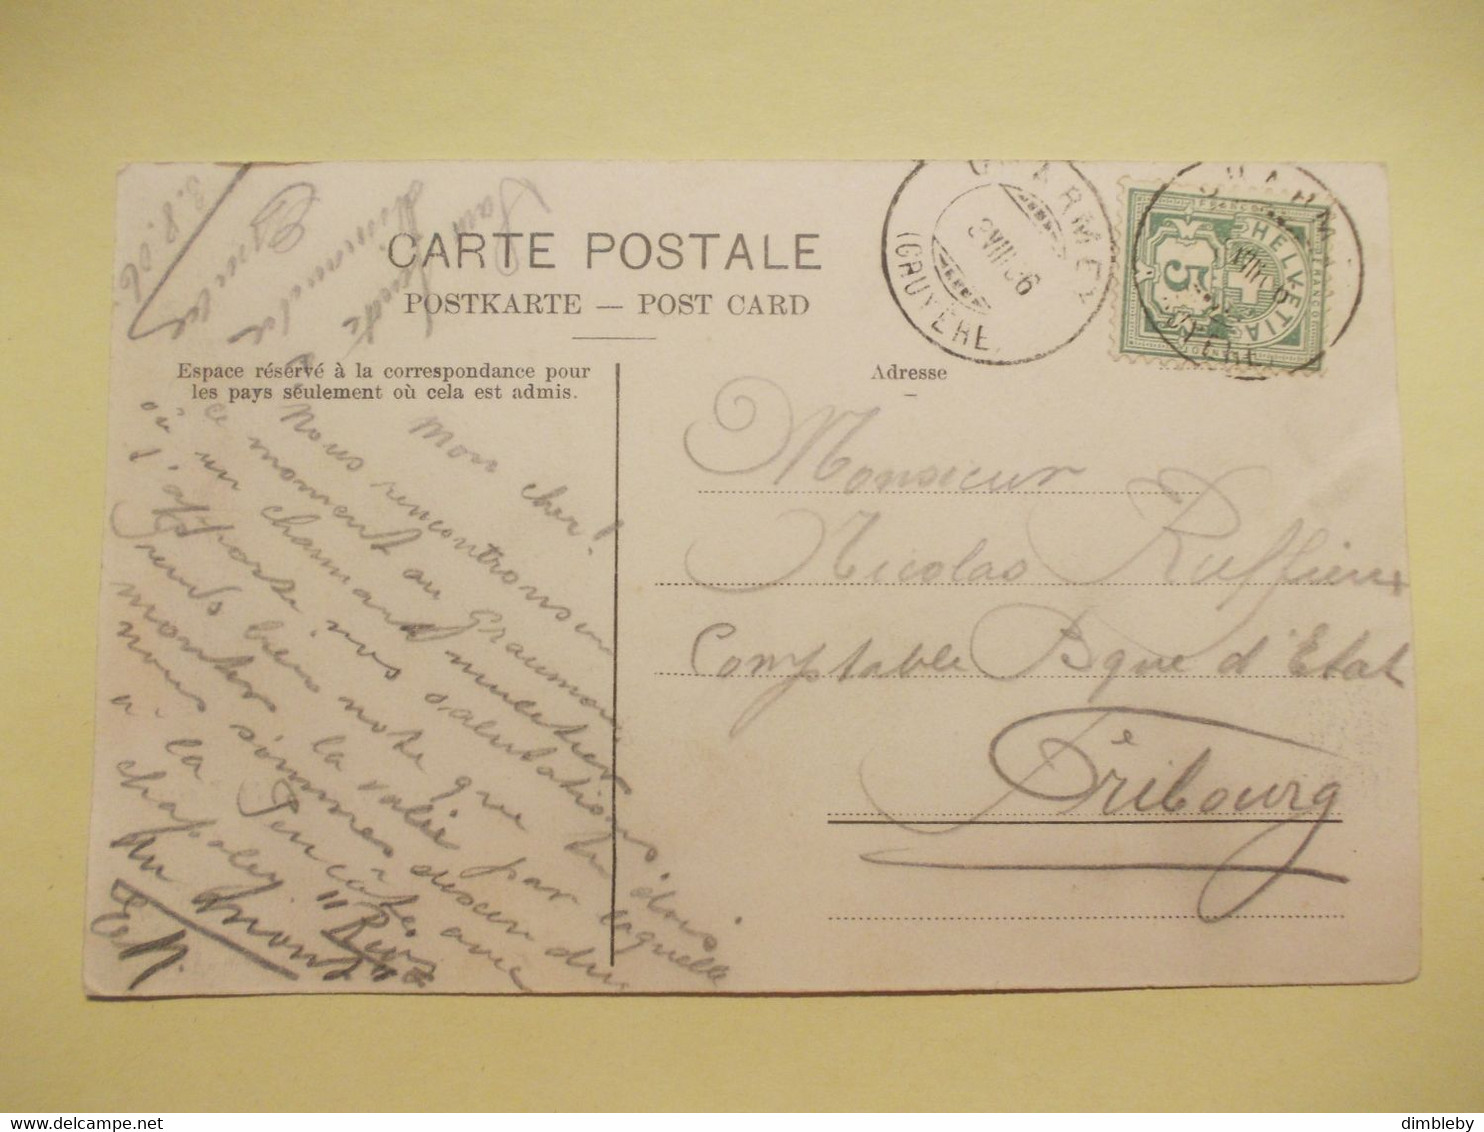 3.8.06.
CARTE POSTALE
POSTKARTE — POST CARD
Espace réservé à la correspondance pour
les pays seulement où cela est admis.
Adresse
CHARMEY
(GRUYÈRE)
3 VIII 06
FRANCO
HELVETIA
5
Mon cher!
Nous rencontrons en
ce moment au
où un charmant muletier
l'apporte nos salutations.
Prends bien note que tu dois
monter la vallée par laquelle
nous sommes descendu
à la avec
chapeley "
au mont "
E.N.
Monsieur
Nicolas Ruffieux
Comptable Bque d'Etat
à
Fribourg
dimbleby